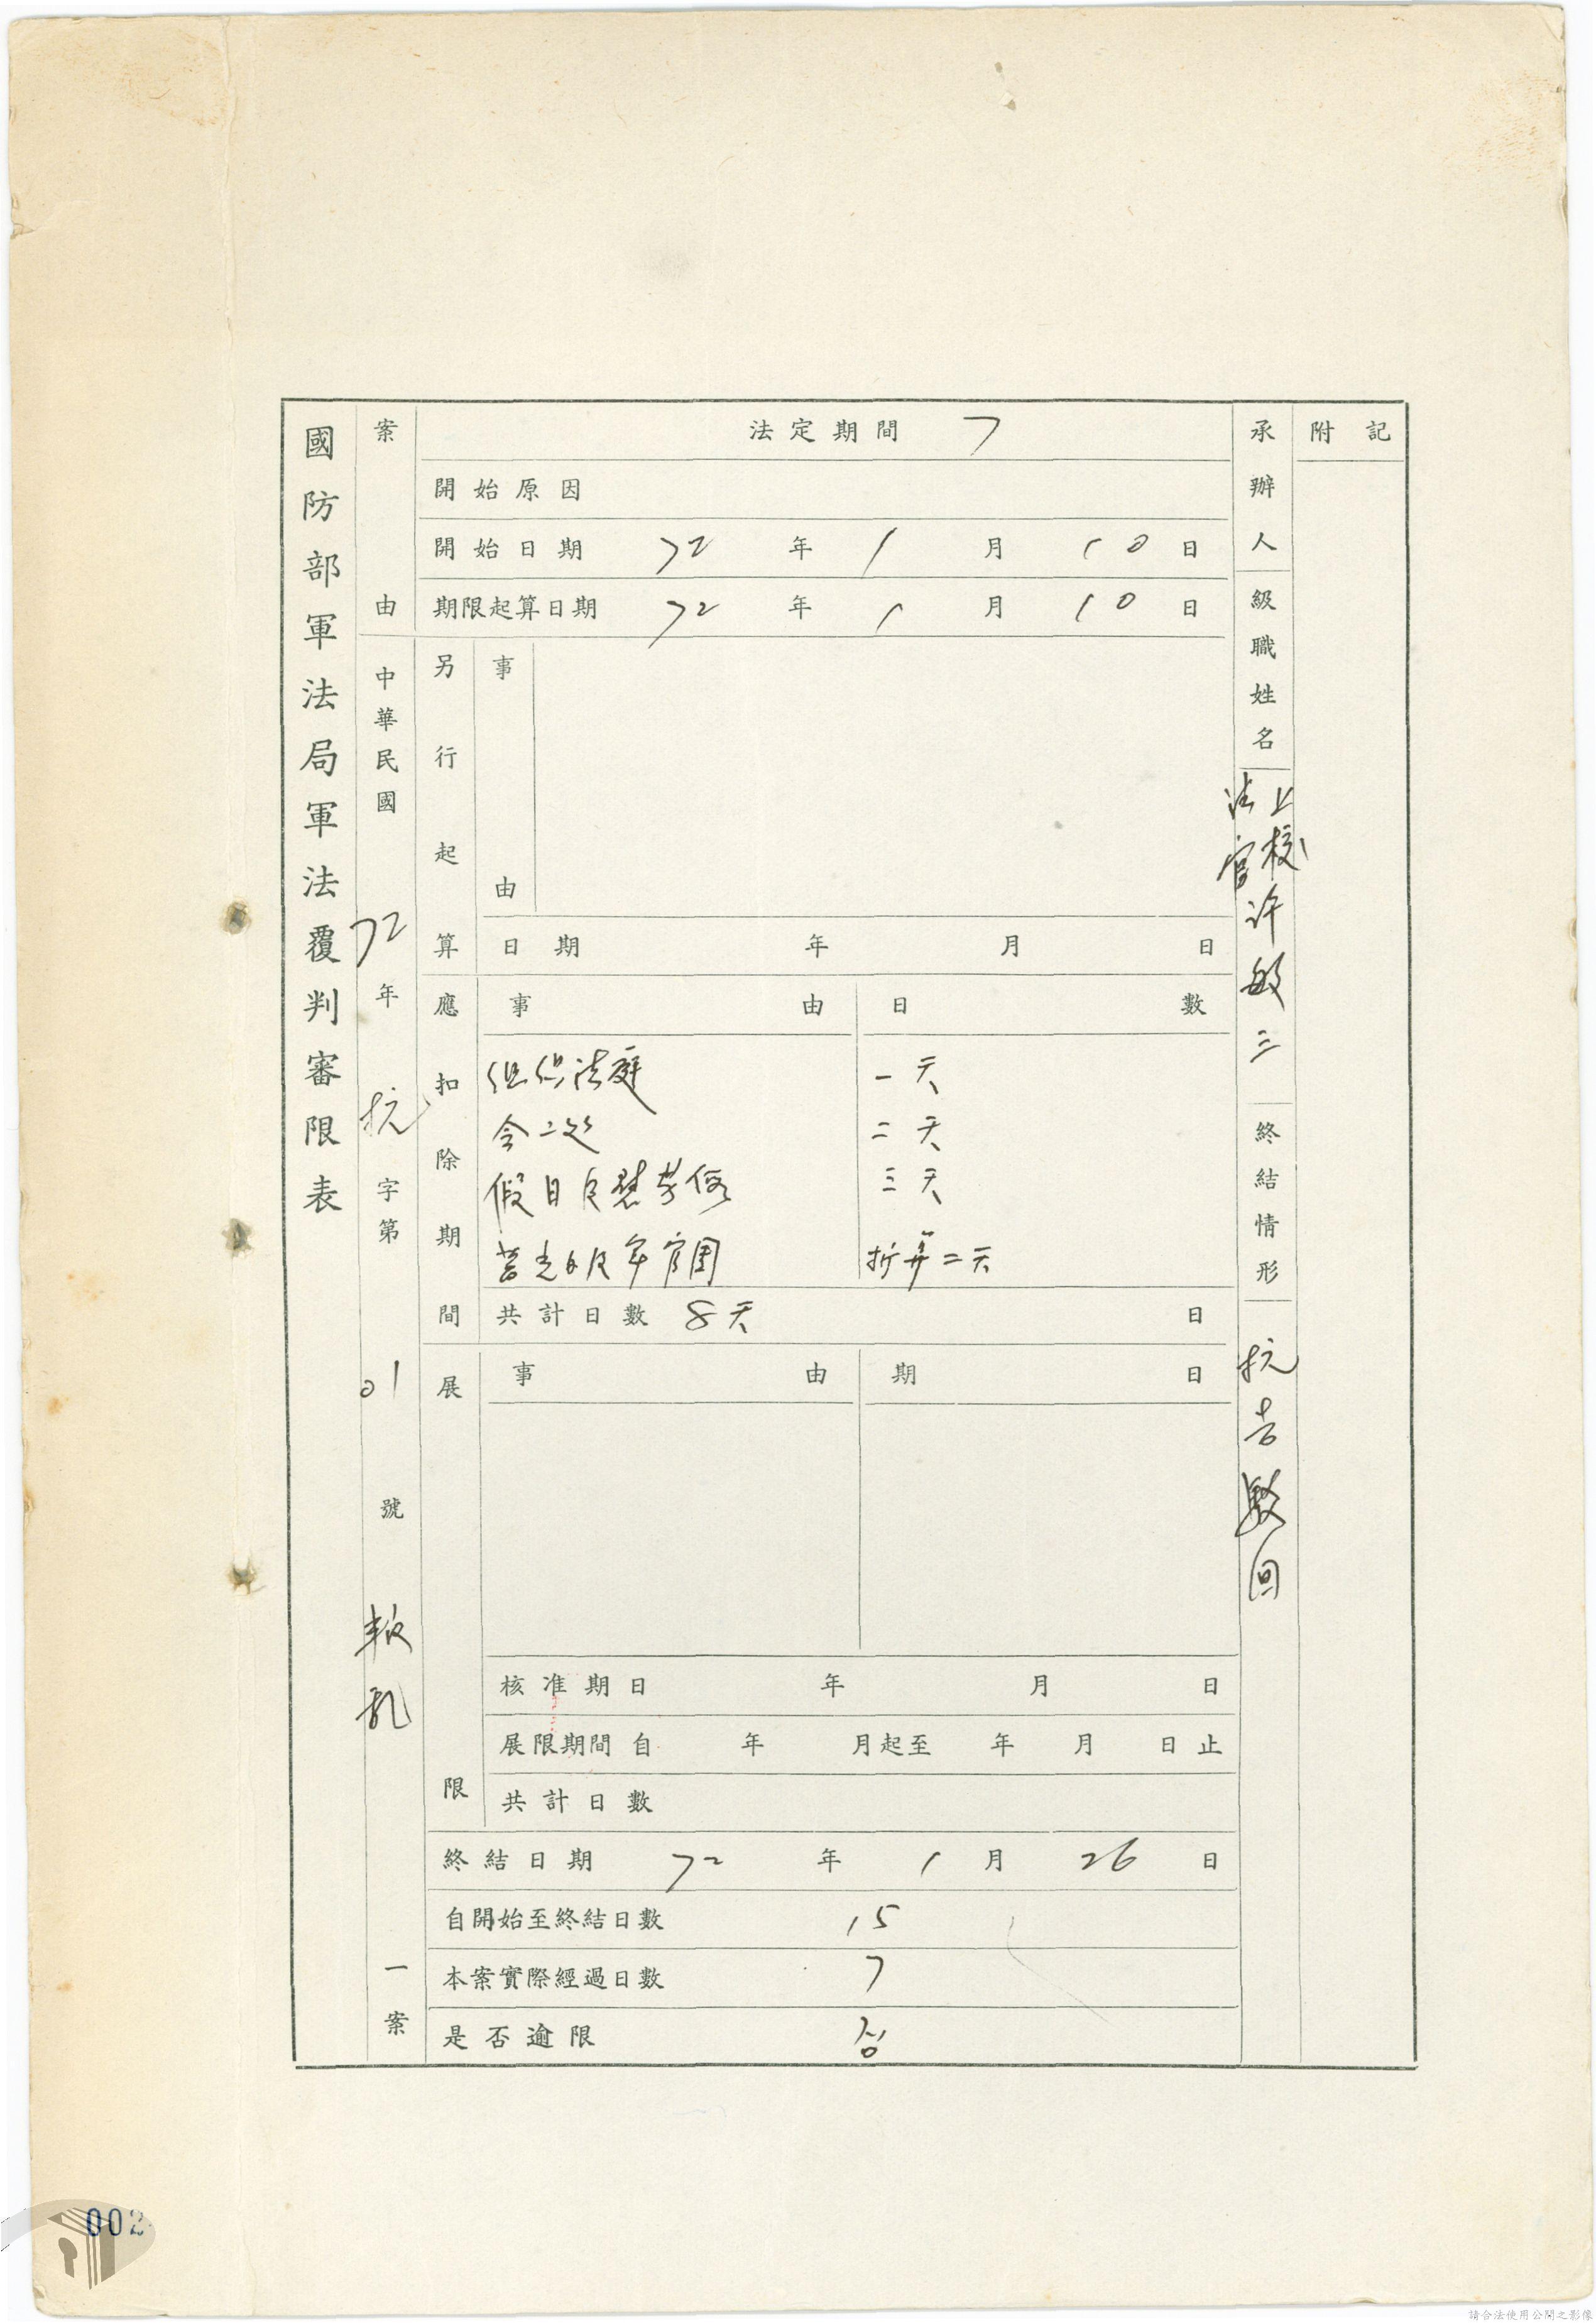 國防部軍法局軍法覆判審限表
案由
中華民國72年抗字第01號 叛乱 一案
法定期間 7
開始原因
開始日期 72年1月10日
期限起算日期 72年1月10日
另行起算
事由
日期 年 月 日
應扣除期間
事由 日數
組织法庭 一天
会二次 二天
假日及慰劳假 三天
莒光日及军官团 折算二天
共計日數 8天 日
展限
事由 期日
核准期日 年 月 日
展限期間自 年 月起至 年 月 日止
共計日數
終結日期 72年1月26日
自開始至終結日數 15
本案實際經過日數 7
是否逾限 否
承辦人級職姓名
上校
法官
许敏三
終結情形
抗告駁回
附記
002
請合法使用公開之影像